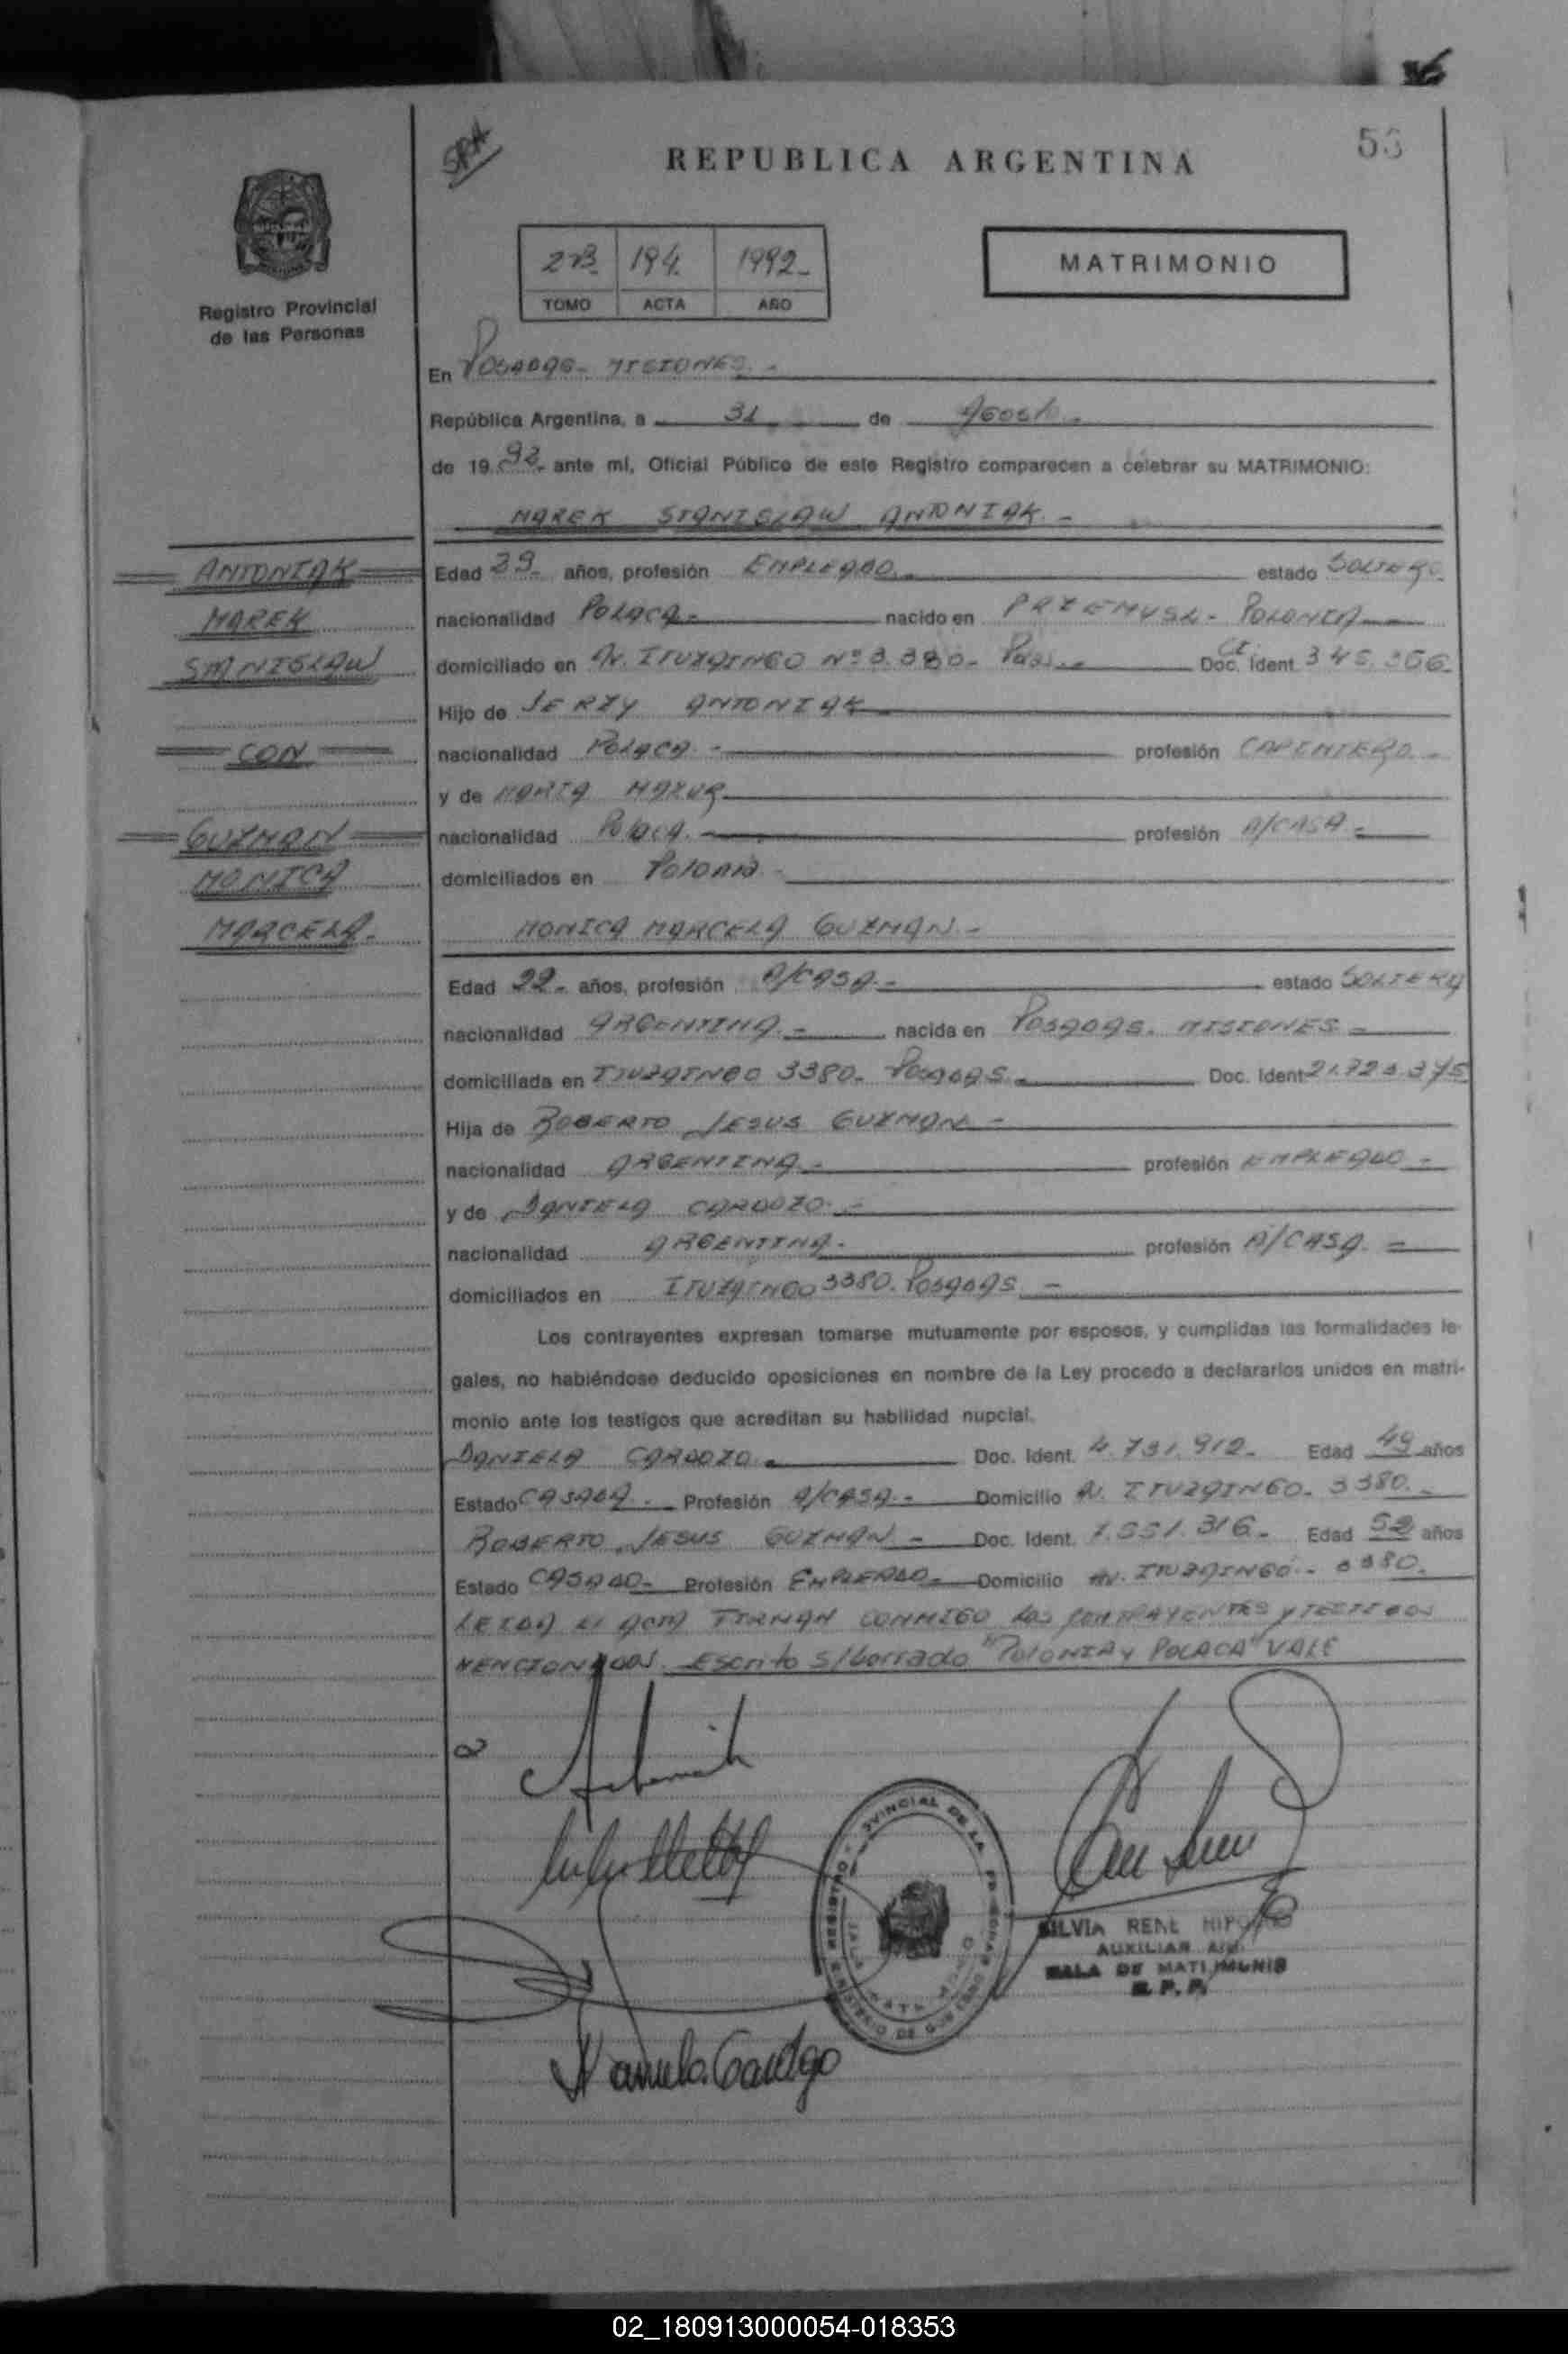 REPUBLICA ARGENTINA
Registro Provincial
de las Personas
2B 194. 1992-
TOMO ACTA AÑO
MATRIMONIO
En POSADAS- MISIONES.-
República Argentina, a 31 de Agosto-
de 19 92- ante mí, Oficial Público de este Registro comparecen a celebrar su MATRIMONIO:
MAREK STANISLAW ANTONIAK.-
ANTONIAK
MAREK
STANISLAW
CON
GUZMAN
MONICA
MARCELA.
Edad años, profesión EMPLEADO.- estado SOLTERO
nacionalidad POLACA- nacido en PRZEMYSL- POLONIA
domiciliado en AV. ITUZAINGO Nº 3.380- Pdas.- Doc. Ident.
Hijo de JERZY ANTONIAK
nacionalidad POLACA.- profesión CAPINTERO-
y de MARIA MAZUR
nacionalidad Polaca.- profesión A/CASA-
domiciliados en Polonia-
MONICA MARCELA GUZMAN.-
Edad 22- años, profesión A/CASA.- estado SOLTERA
nacionalidad ARGENTINA.- nacida en POSADAS. MISIONES-
domiciliada en ITUZAINGO 3380- POSADAS.- Doc. Ident
Hija de ROBERTO JESUS GUZMAN-
nacionalidad ARGENTINA.- profesión EMPLEADO-
y de DANIELA CARDOZO.-
nacionalidad ARGENTINA- profesión A/CASA.-
domiciliados en ITUZAINGO 3380. POSADAS-
Los contrayentes expresan tomarse mutuamente por esposos, y cumplidas las formalidades le-
gales, no habiéndose deducido oposiciones en nombre de la Ley procedo a declararlos unidos en matri-
monio ante los testigos que acreditan su habilidad nupcial.
DANIELA CARDOZO.- Doc. Ident. 4.731.912- Edad 49 años
Estado CASADA. Profesión A/CASA.- Domicilio AV. ITUZAINGO- 3380.-
ROBERTO JESUS GUZMAN- Doc. Ident. 7.551.316- Edad 52 años
Estado CASADO- Profesión EMPLEADO- Domicilio AV. ITUZAINGO- 3380.
LEIDA EL ACTA FIRMAN CONMIGO LOS CONTRAYENTES y TESTIGOS
MENCIONADOS. Escrito s/borrado "POLONIA y POLACA" VALE
SILVIA RENE
AUXILIAR
SALA DE MATRIMONIO
R. P. P.
02_180913000054-018353